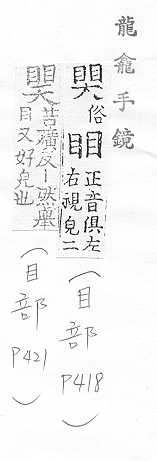 龍龕手鏡
俗
䀠
正音俱左
右視皃二
（目部 P418）
苦礦反丨然舉
目又好皃也
（目部 P421）